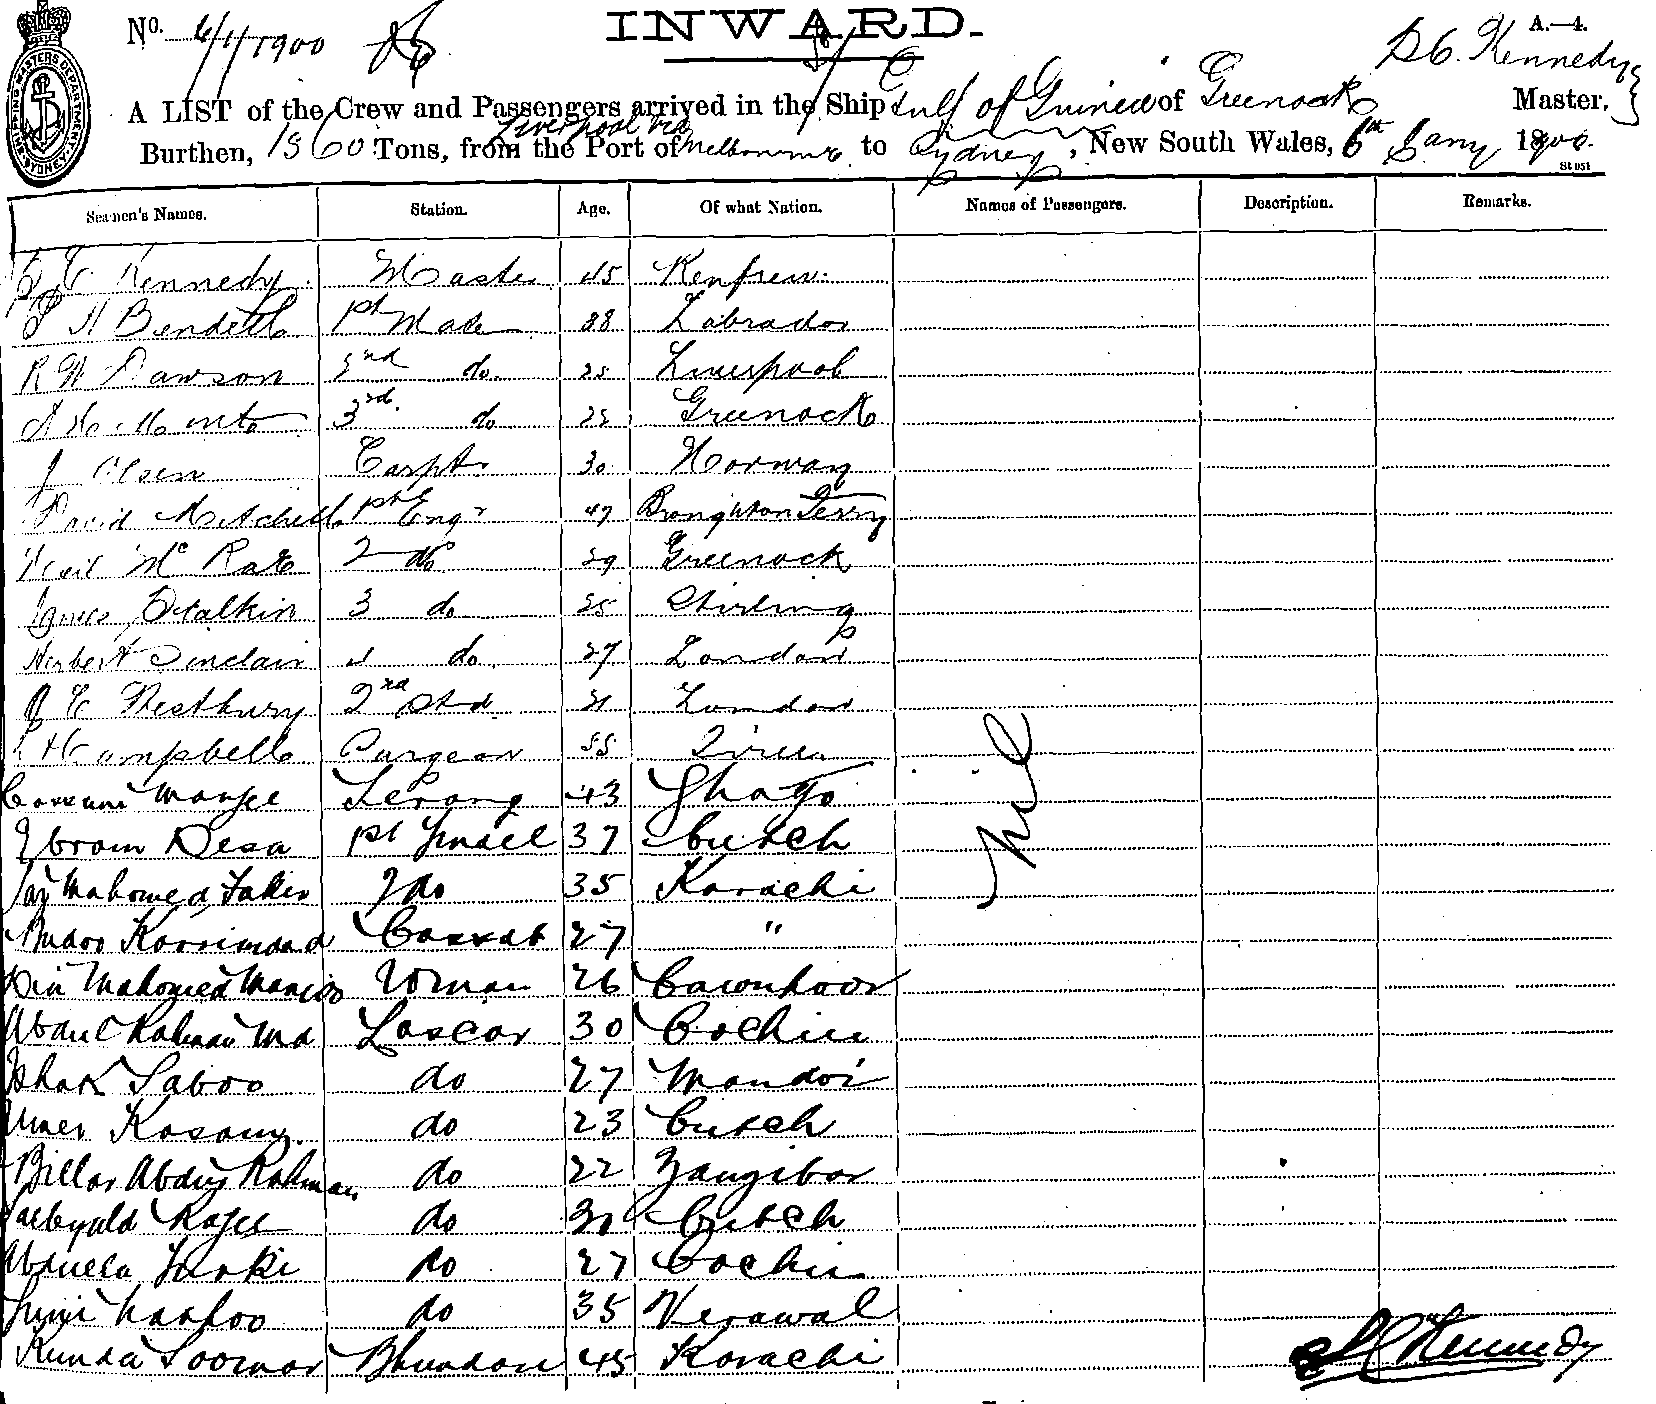 No. 6/1/1900 INWARD. A.—4.
D C. Kennedy
A LIST of the Crew and Passengers arrived in the Ship Gulf of Guinea of Greenock Master,
Liverpool via
Burthen, 1560 Tons, from the Port of Melbourne to Sydney, New South Wales, 6th Jany 1900.
St 051
Seamen's Names. Station. Age. Of what Nation. Names of Passengers. Description. Remarks.
C Kennedy Master 45 Renfrew
H Bendell 1st Mate 38 Labrador
R W Dawson 2nd do. 25 Liverpool
3rd. do 22 Greenock
J Olsen Carptr 30 Norway
David Mitchell 1st Engr 47 Broughton Ferry
Neil Mc Rae 2 do 29 Greenock
James Stalkin 3 do 25 Stirling
Herbert Sinclair 4 do. 27 London
J E Westbury 2nd Std. 21 London
Campbell Surgeon 55 Tiree
Serang 43 Ghogo
Ebram Desa 1st Tindel 37 Cutch
Mahomed Fakir 2 do 35 Karachi
Cassab 27 "
Din Mahomed 26
Abdul Rahman Md Lascar 30 Cochin
Ishak Saboo do 27
Umer do 23 Cutch
Billar Abdul Rahman do 22 Zanzibar
do 30 Cutch
do 27 Cochin
do 35 Verawal
Soomar Bhundary 45 Karachi
Nil
Kennedy